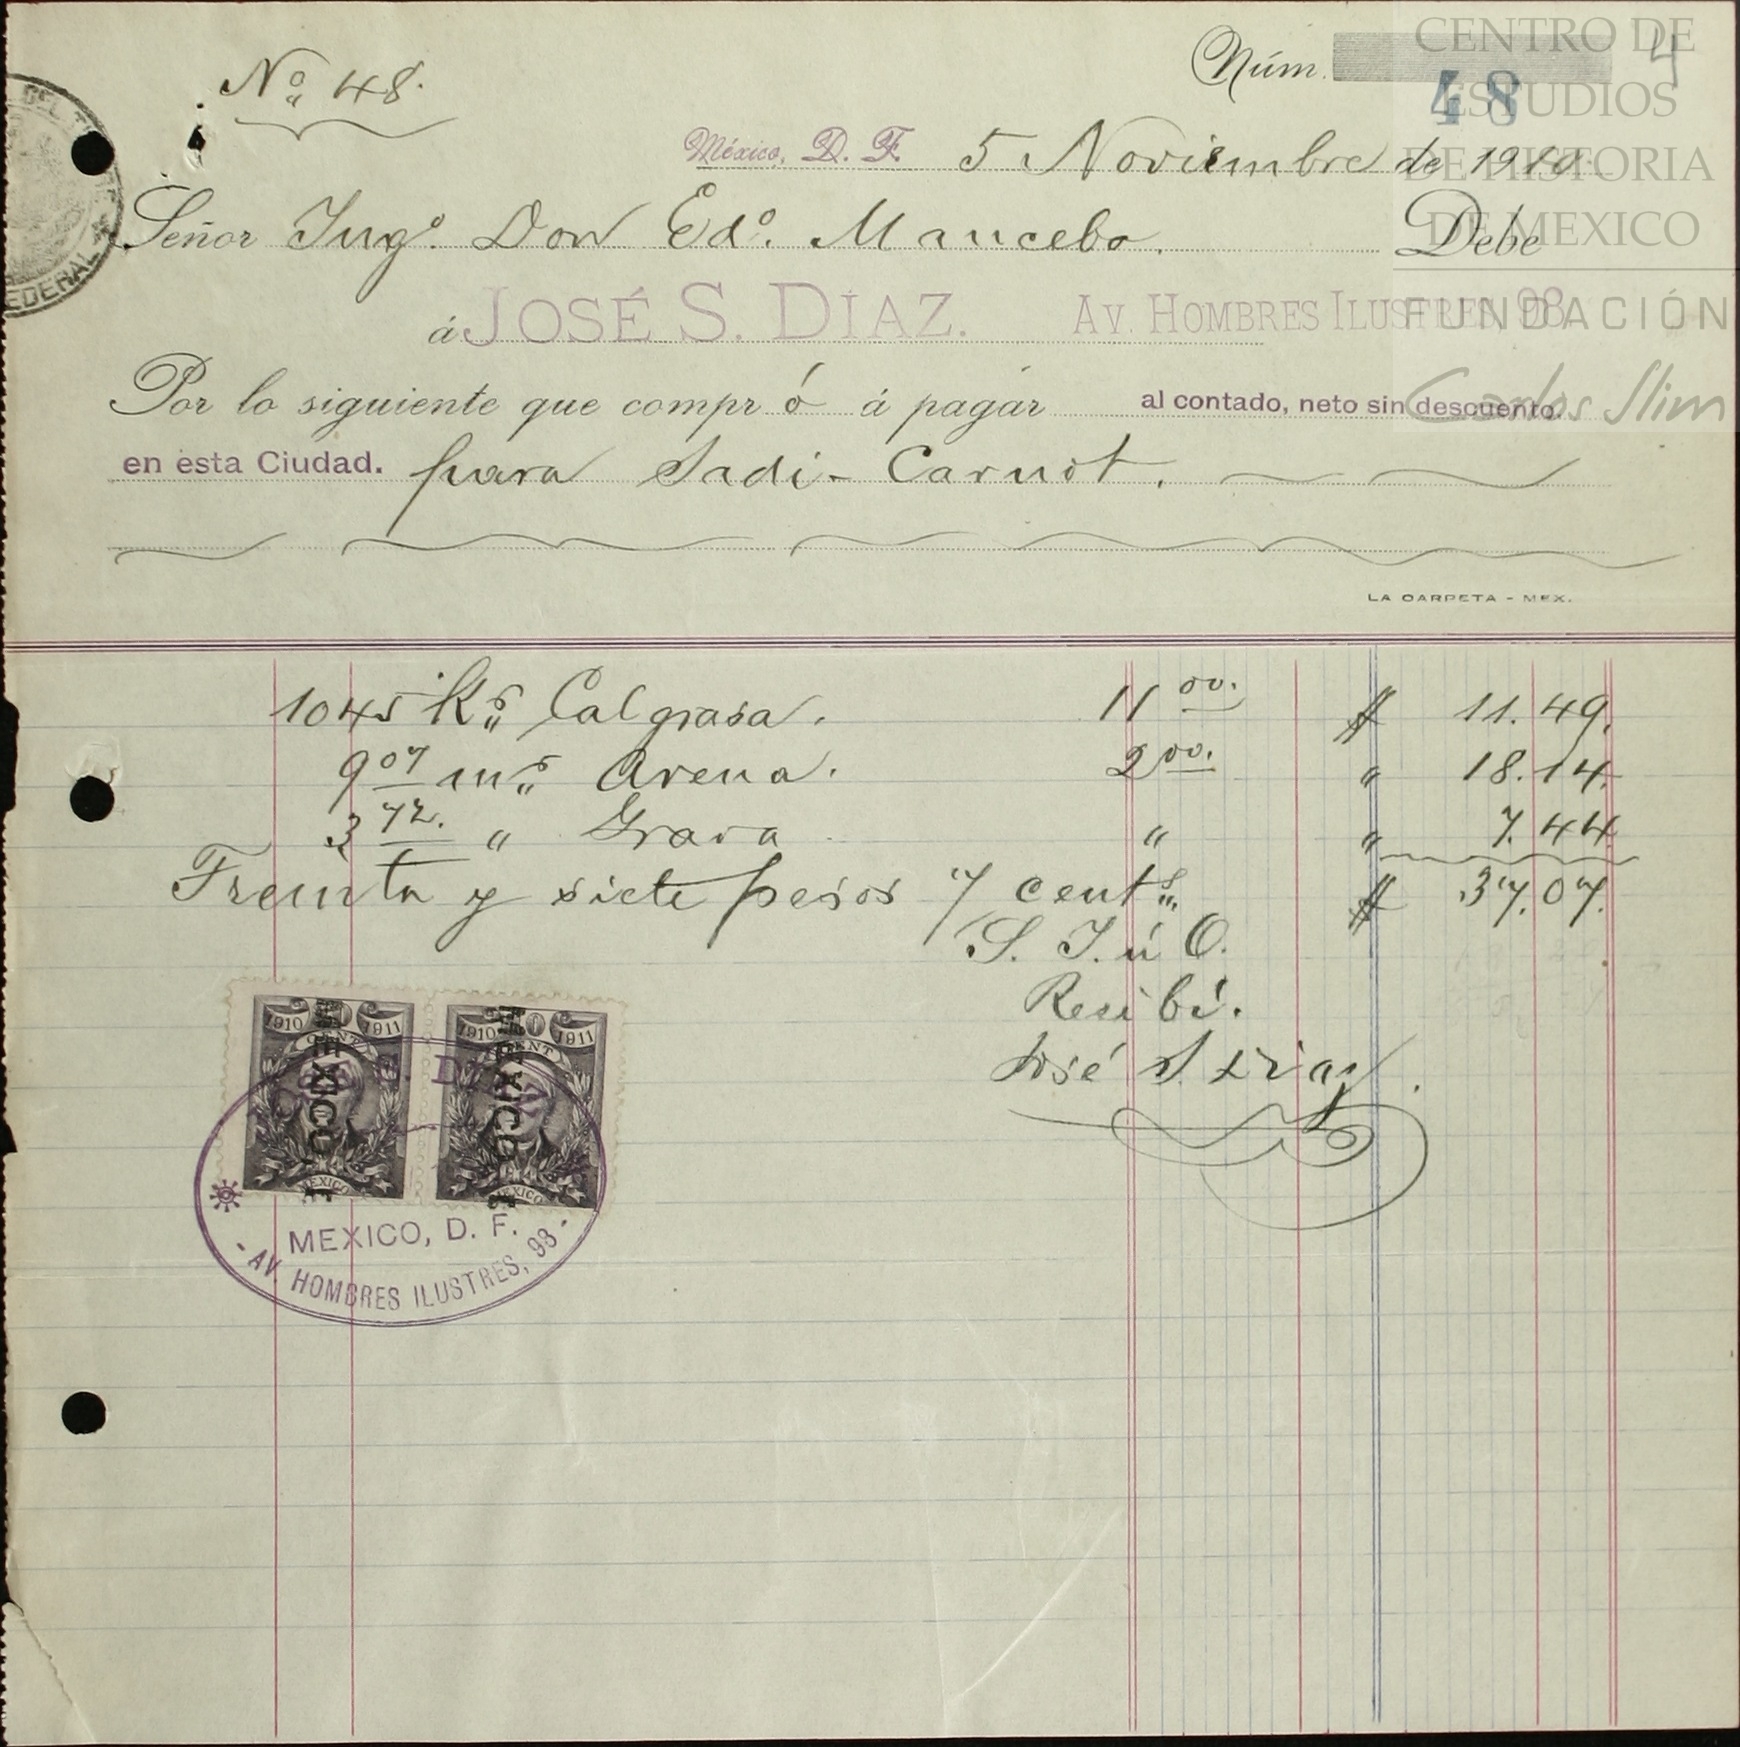 Nº 48.
Núm. 4
48
México, D. F. 5 Noviembre de 1910.
Señor Ingº. Don Edº. Mancebo. Debe
á JOSÉ S. DÍAZ. AV. HOMBRES ILUSTRES, 93.
Por lo siguiente que compró á pagar al contado, neto sin descuento.
en esta Ciudad. para Sadi-Carnot.
LA CARPETA - MEX.
1045 Ks Cal grasa. 11 00. $ 11.49.
9 07 ms Arena. 2 00. " 18.14.
3 72. " Grava " " 7.44
Treinta y siete pesos 7 cents. $ 37.07.
S. I. ú O.
Recibí.
José S. Díaz.
1910 1911
CENT
MEXICO
MEXICO
1910 1911
CENT
MEXICO
MEXICO
MEXICO, D. F.
- AV. HOMBRES ILUSTRES, 93 -
FEDERAL
CENTRO DE
ESTUDIOS
DE HISTORIA
DE MEXICO
FUNDACIÓN
Carlos Slim